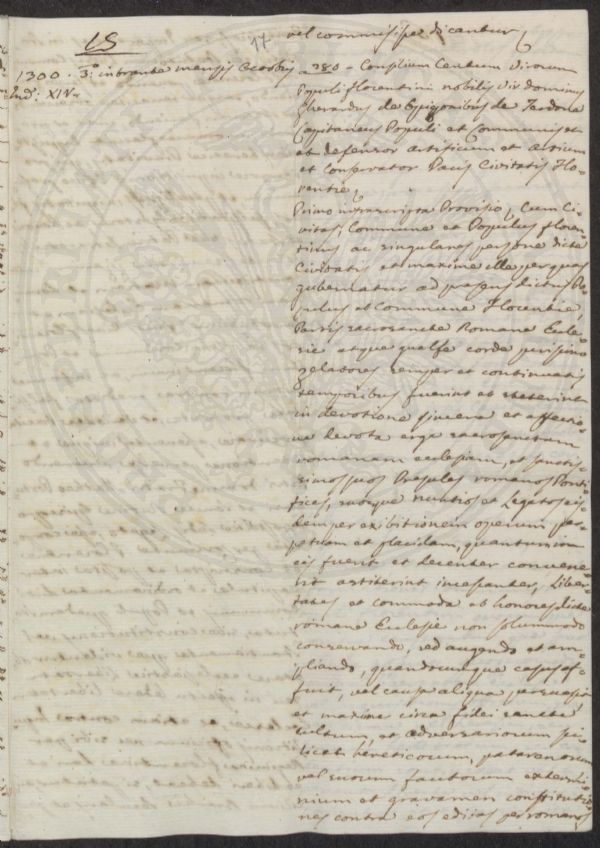 15
17
vel commisisse dicantur,
1300. 3.° intrante mensis Octobris
Ind: XIV.
a 280 - Consilium Centum Virorum
Populi florentini nobilis Vir dominus
Gherardus de de Terdona
Capitaneus Populi et Communis et
et defensor artificum et Artium
et Conservator Pacis Civitatis Flo-
rentie,
Primo infrascripta Provisio, Cum Ci-
vitas, Commune et Populus floren-
tinus ac singulares persone dicte
Civitatis et maxime ille per quas
gubernatur ad presens dictus Po-
pulus et Commune Florentie,
Partis sacrosancte Romane Eccle-
sie atque corde purissimo
zelatores semper et continuatis
temporibus fuerint et steterint
in devotione sincera et affectio-
ne devota erga sacrosanctam
romanam ecclesiam, et sanctis-
simos suos Presules romanos Ponti-
fices, suosque nuntios et Legatos eis-
dem per exibitionem operum per-
petuam et placidam, quantumcum
eis fuerit et decenter convene-
rit astiterint incessanter, Liber-
tates et commoda et honores dicte
romane Ecclesie non solummodo
conservando, sed augendo et am-
pliando, quandocumque casus af-
fuit, vel causa aliqua persuasit
et maxime circa fidei sancte
cultum, et adversariorum sci-
licet hereticorum, patarenorum
vel suorum fautorum extermi-
nium et gravamen constitutio-
nes contra eos editas per romanos